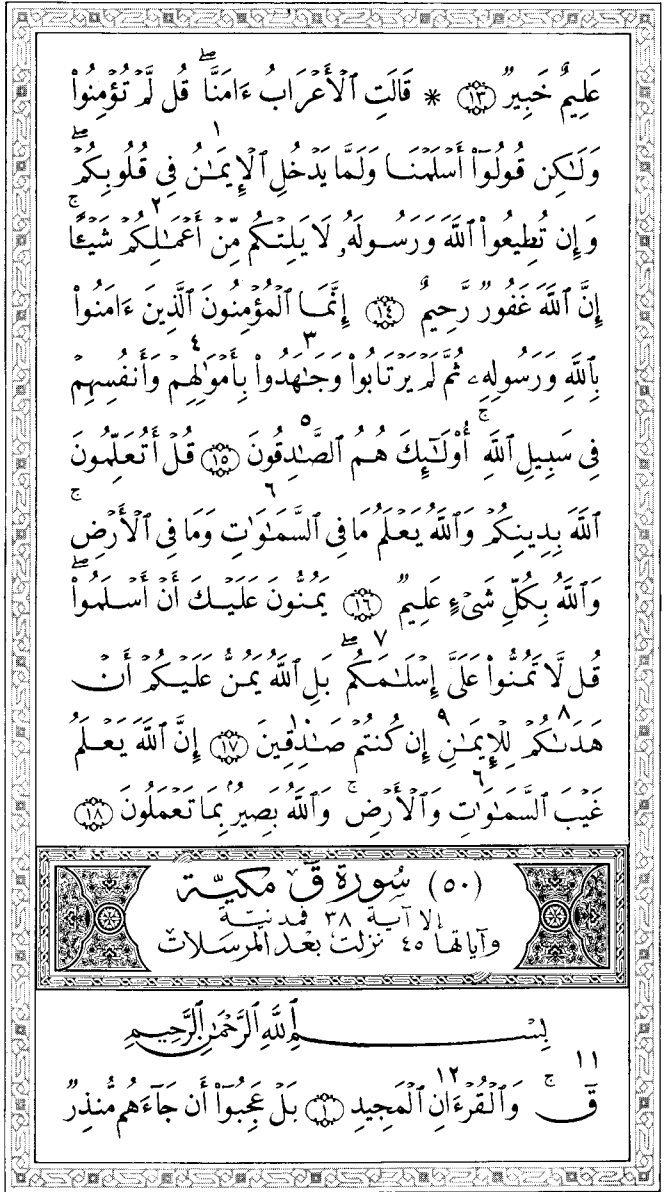 عَلِيمٌ خَبِيرٌ ١٣ * قَالَتِ ٱلْأَعْرَابُ ءَامَنَّاۖ قُل لَّمْ تُؤْمِنُوا۟
١
وَلَـٰكِن قُولُوٓا۟ أَسْلَمْنَا وَلَمَّا يَدْخُلِ ٱلْإِيمَـٰنُ فِى قُلُوبِكُمْۖ
٢
وَإِن تُطِيعُوا۟ ٱللَّهَ وَرَسُولَهُۥ لَا يَلِتْكُم مِّنْ أَعْمَـٰلِكُمْ شَيْـًٔاۚ
إِنَّ ٱللَّهَ غَفُورٌ رَّحِيمٌ ١٤ إِنَّمَا ٱلْمُؤْمِنُونَ ٱلَّذِينَ ءَامَنُوا۟
٣ ٤
بِٱللَّهِ وَرَسُولِهِۦ ثُمَّ لَمْ يَرْتَابُوا۟ وَجَـٰهَدُوا۟ بِأَمْوَٰلِهِمْ وَأَنفُسِهِمْ
٥
فِى سَبِيلِ ٱللَّهِۚ أُو۟لَـٰٓئِكَ هُمُ ٱلصَّـٰدِقُونَ ١٥ قُلْ أَتُعَلِّمُونَ
٦
ٱللَّهَ بِدِينِكُمْ وَٱللَّهُ يَعْلَمُ مَا فِى ٱلسَّمَـٰوَٰتِ وَمَا فِى ٱلْأَرْضِۚ
وَٱللَّهُ بِكُلِّ شَىْءٍ عَلِيمٌ ١٦ يَمُنُّونَ عَلَيْكَ أَنْ أَسْلَمُوا۟ۖ
٧
قُل لَّا تَمُنُّوا۟ عَلَىَّ إِسْلَـٰمَكُمۖ بَلِ ٱللَّهُ يَمُنُّ عَلَيْكُمْ أَنْ
٨ ٩
هَدَىٰكُمْ لِلْإِيمَـٰنِ إِن كُنتُمْ صَـٰدِقِينَ ١٧ إِنَّ ٱللَّهَ يَعْلَمُ
٦
غَيْبَ ٱلسَّمَـٰوَٰتِ وَٱلْأَرْضِۚ وَٱللَّهُ بَصِيرٌۢ بِمَا تَعْمَلُونَ ١٨
(٥٠) سُورَة قٓ مكيّة
إلا آية ٣٨ فمدنيّة
وآياتها ٤٥ نزلت بعد المرسلات
بِسْمِ ٱللَّهِ ٱلرَّحْمَـٰنِ ٱلرَّحِيمِ
١١ ١٢
قٓۚ وَٱلْقُرْءَانِ ٱلْمَجِيدِ ١ بَلْ عَجِبُوٓا۟ أَن جَآءَهُم مُّنذِرٌ